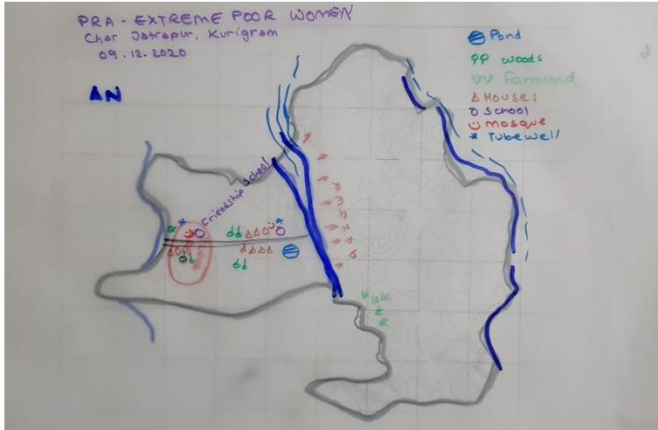 PRA - EXTREME POOR WOMEN
Char Jatrapur, Kurigram
09.12.2020
N
Pond
woods
farmland
Houses
School
mosque
Tubewell
Friendship School